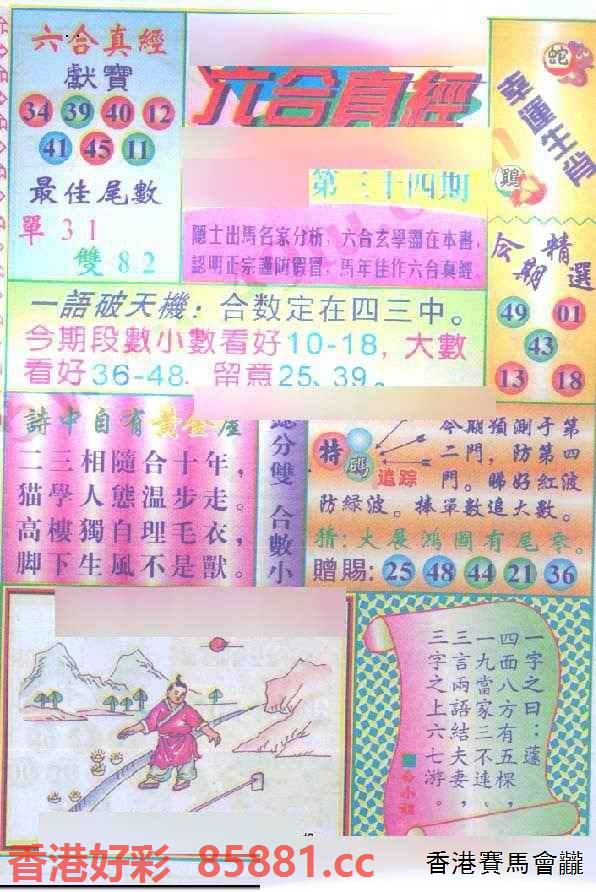 六合真經
獻寶
34 39 40 12
41 45 11
最佳尾數
單31
雙82
六合真經
第三十四期
隱士出馬名家分析,六合玄學盡在本書,
認明正宗謹防假冒,馬年佳作六合真經.
蛇
幸運生肖
鷄
今期精選
49 01
43
13 18
一語破天機:合数定在四三中。
今期段數小數看好10-18,大數
看好36-48.留意25、39。
詩中自有黃金屋
二三相隨合十年,
猫學人態温步走。
高樓獨自理毛衣,
脚下生風不是獸。
分雙 合數小
特碼
追踪
今期須測于第
二門,防第四
門。睇好紅波
防緑波。棒單數追大數。
猜:大展鴻圖有尾零。
贈賜:25 48 44 21 36
一字之曰:蓬
四面八方有五棵,
一九當家三不連。
三言兩語結夫妻,
三字之上六七游。
香港好彩 85881.cc
香港賽馬會